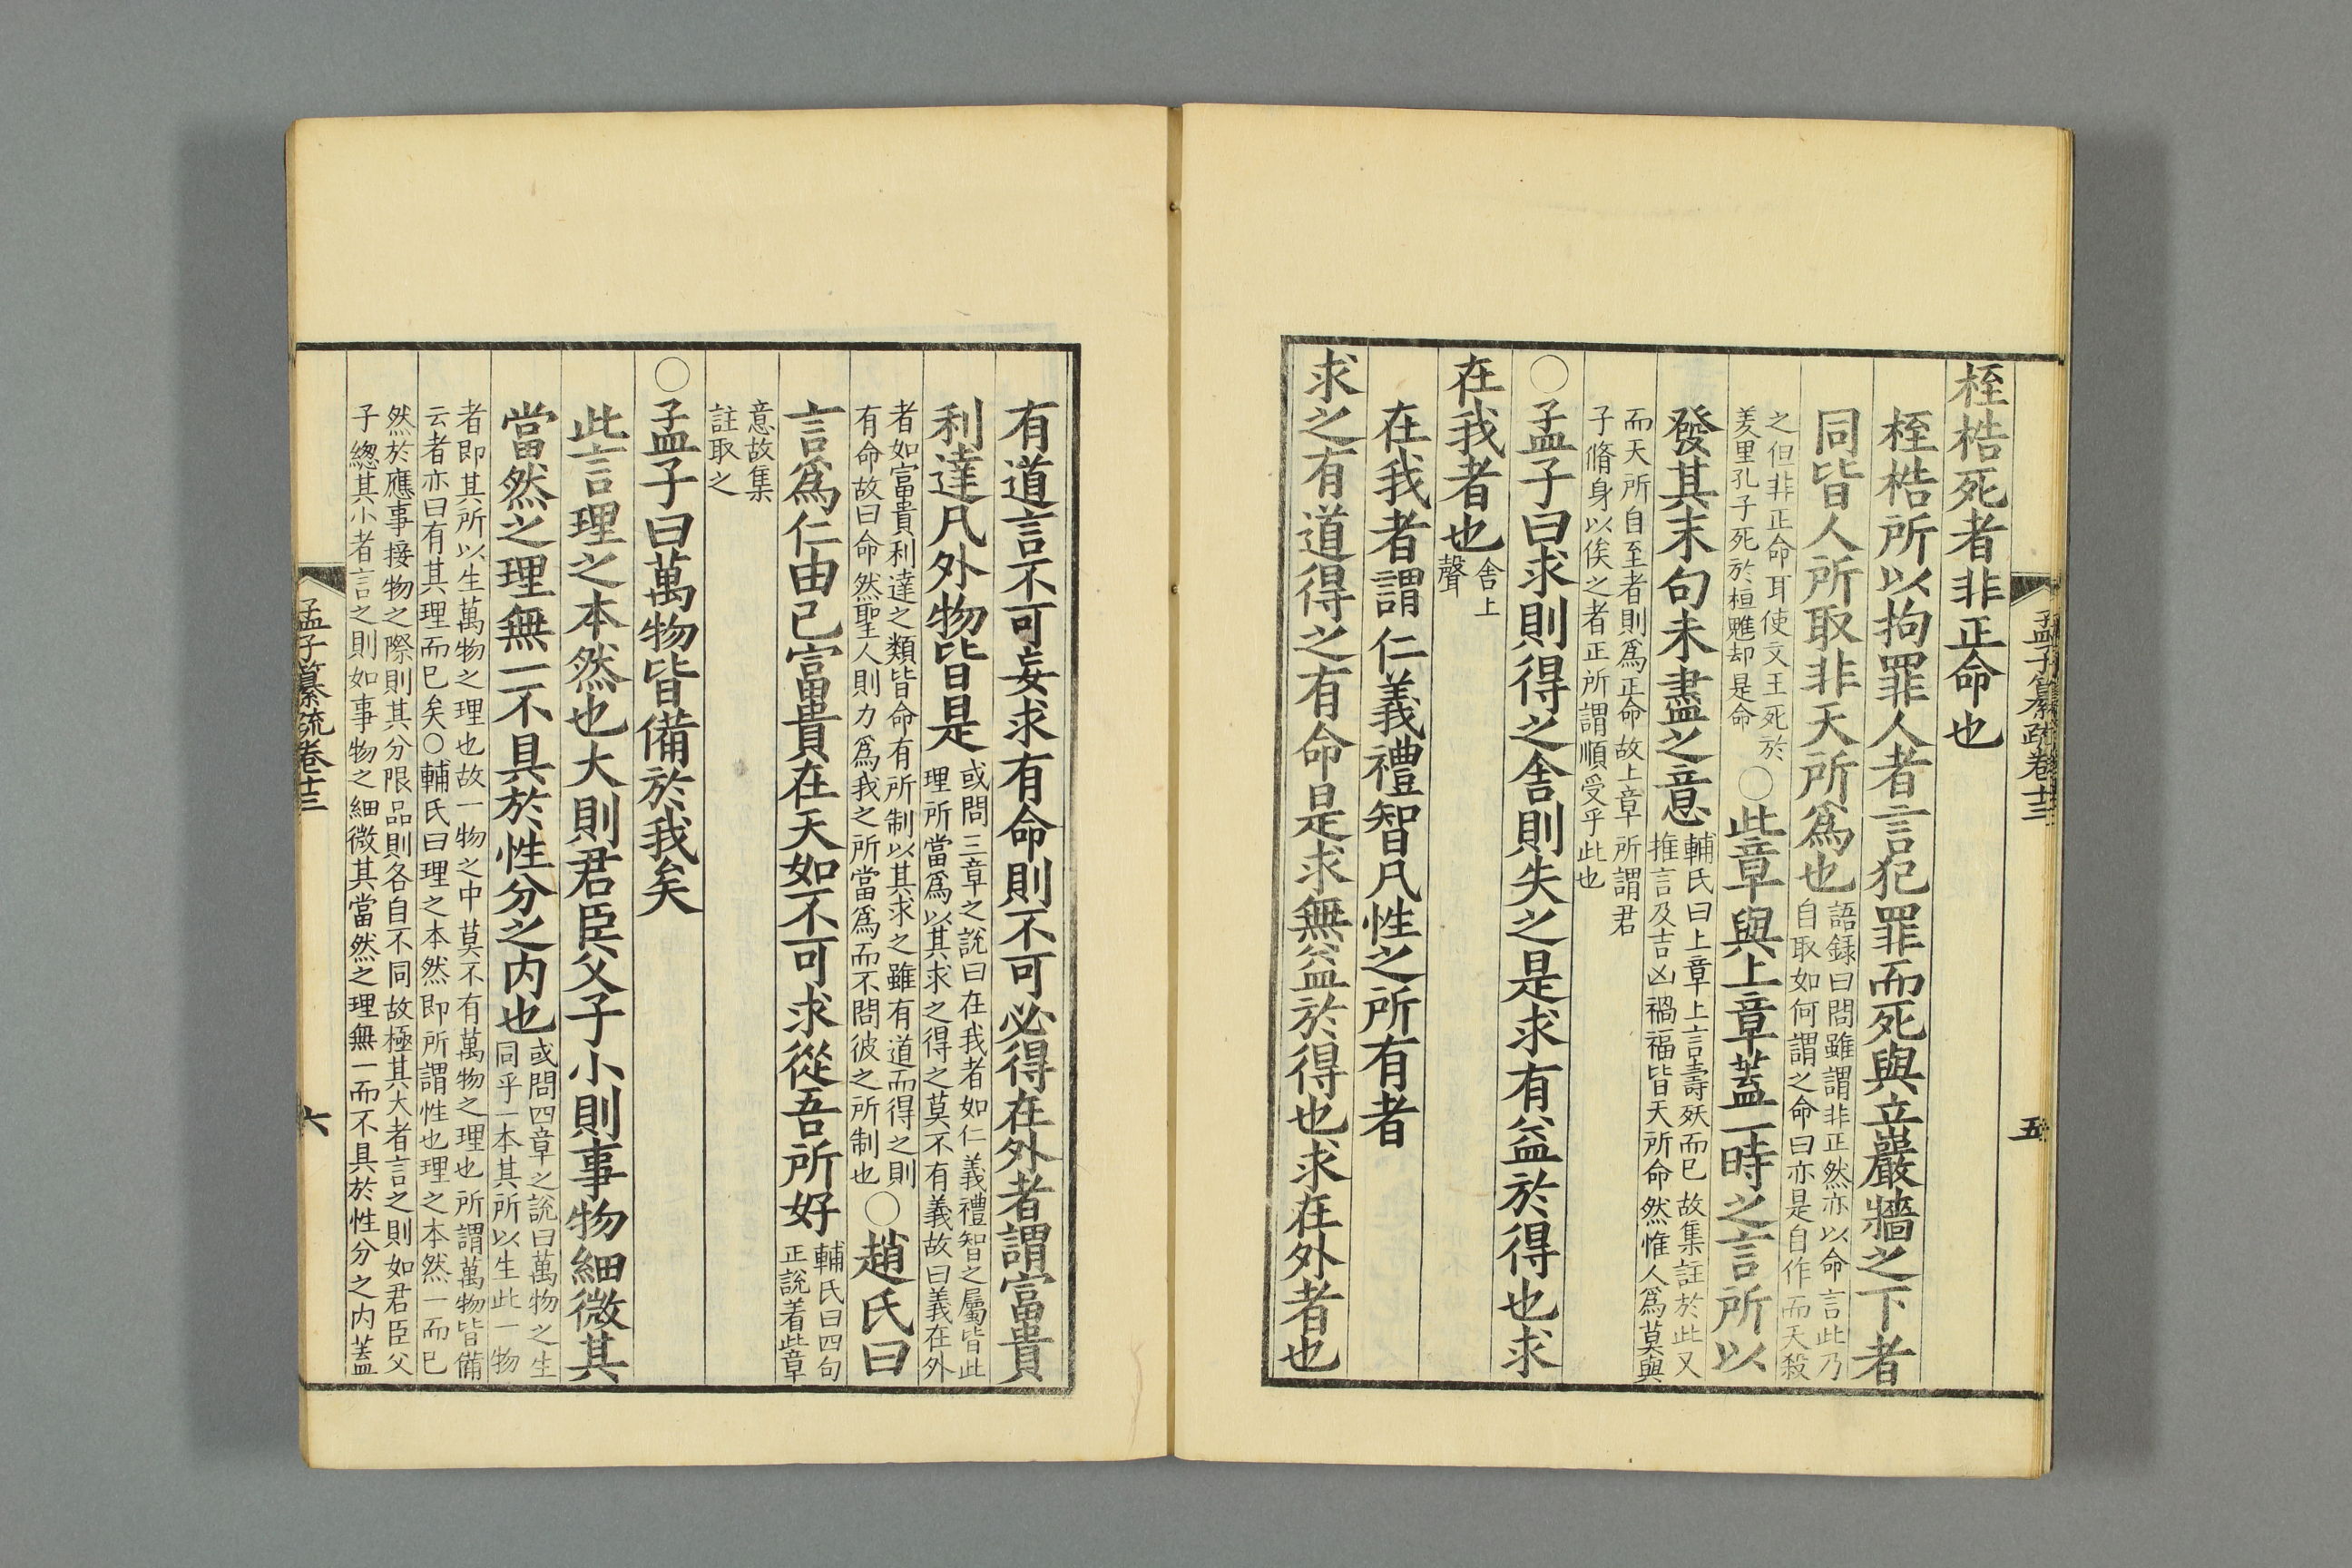 孟子纂疏卷十三
五
桎梏死者非正命也
桎梏所以拘罪人者言犯罪而死與立巖牆之下者
同皆人所取非天所爲也
語錄曰問雖謂非正然亦以命言此乃
自取如何謂之命曰亦是自作而天殺
之但非正命耳使文王死於
羑里孔子死於桓魋却是命
○此章與上章蓋一時之言所以
發其末句未盡之意
輔氏曰上章上言壽殀而已故集註於此又
推言及吉凶禍福皆天所命然惟人爲莫與
而天所自至者則爲正命故上章所謂君
子脩身以俟之者正所謂順受乎此也
○孟子曰求則得之舍則失之是求有益於得也求
在我者也
舍上
聲
在我者謂仁義禮智凡性之所有者
求之有道得之有命是求無益於得也求在外者也
有道言不可妄求有命則不可必得在外者謂富貴
利達凡外物皆是
或問三章之說曰在我者如仁義禮智之屬皆此
理所當爲以其求之得之莫不有義故曰義在外
者如富貴利達之類皆命有所制以其求之雖有道而得之則
有命故曰命然聖人則力爲我之所當爲而不問彼之所制也
○趙氏曰
言爲仁由己富貴在天如不可求從吾所好
輔氏曰四句
正說着此章
意故集
註取之
○孟子曰萬物皆備於我矣
此言理之本然也大則君臣父子小則事物細微其
當然之理無一不具於性分之内也
或問四章之說曰萬物之生
同乎一本其所以生此一物
者即其所以生萬物之理也故一物之中莫不有萬物之理也所謂萬物皆備
云者亦曰有其理而已矣○輔氏曰理之本然即所謂性也理之本然一而已
然於應事接物之際則其分限品則各自不同故極其大者言之則如君臣父
子總其小者言之則如事物之細微其當然之理無一而不具於性分之内蓋
孟子纂疏卷十三
六